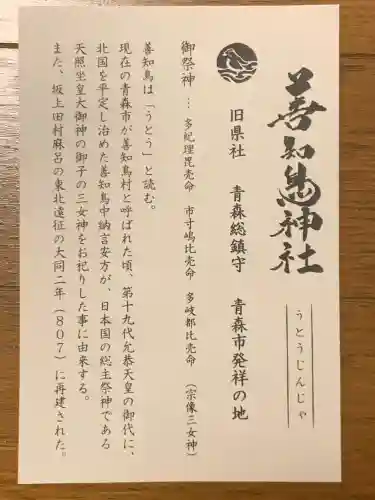 善知鳥神社
うとうじんじゃ
旧県社　青森総鎮守　青森市発祥の地
御祭神 … 多紀理毘売命　市寸嶋比売命　多岐都比売命　(宗像三女神)
善知鳥は「うとう」と読む。
現在の青森市が善知鳥村と呼ばれた頃、第十九代允恭天皇の御代に、
北国を平定し治めた善知鳥中納言安方が、日本国の総主祭神である
天照坐皇大御神の御子の三女神をお祀りした事に由来する。
また、坂上田村麻呂の東北遠征の大同二年(807)に再建された。